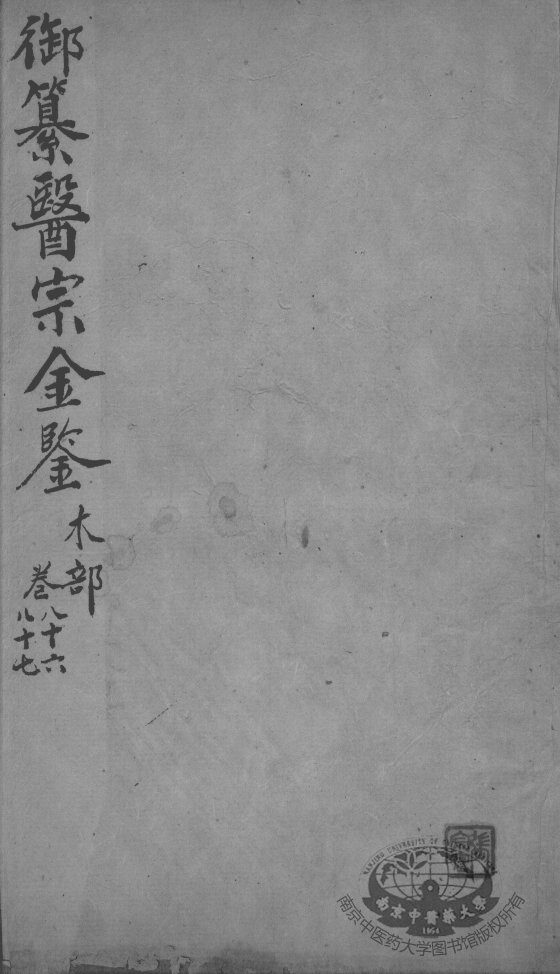 御纂醫宗金鑒
木部
卷八十六
八十七
NANJING UNIVERSITY OF
南京中醫藥大學
1954
南京中医药大学图书馆版权所有